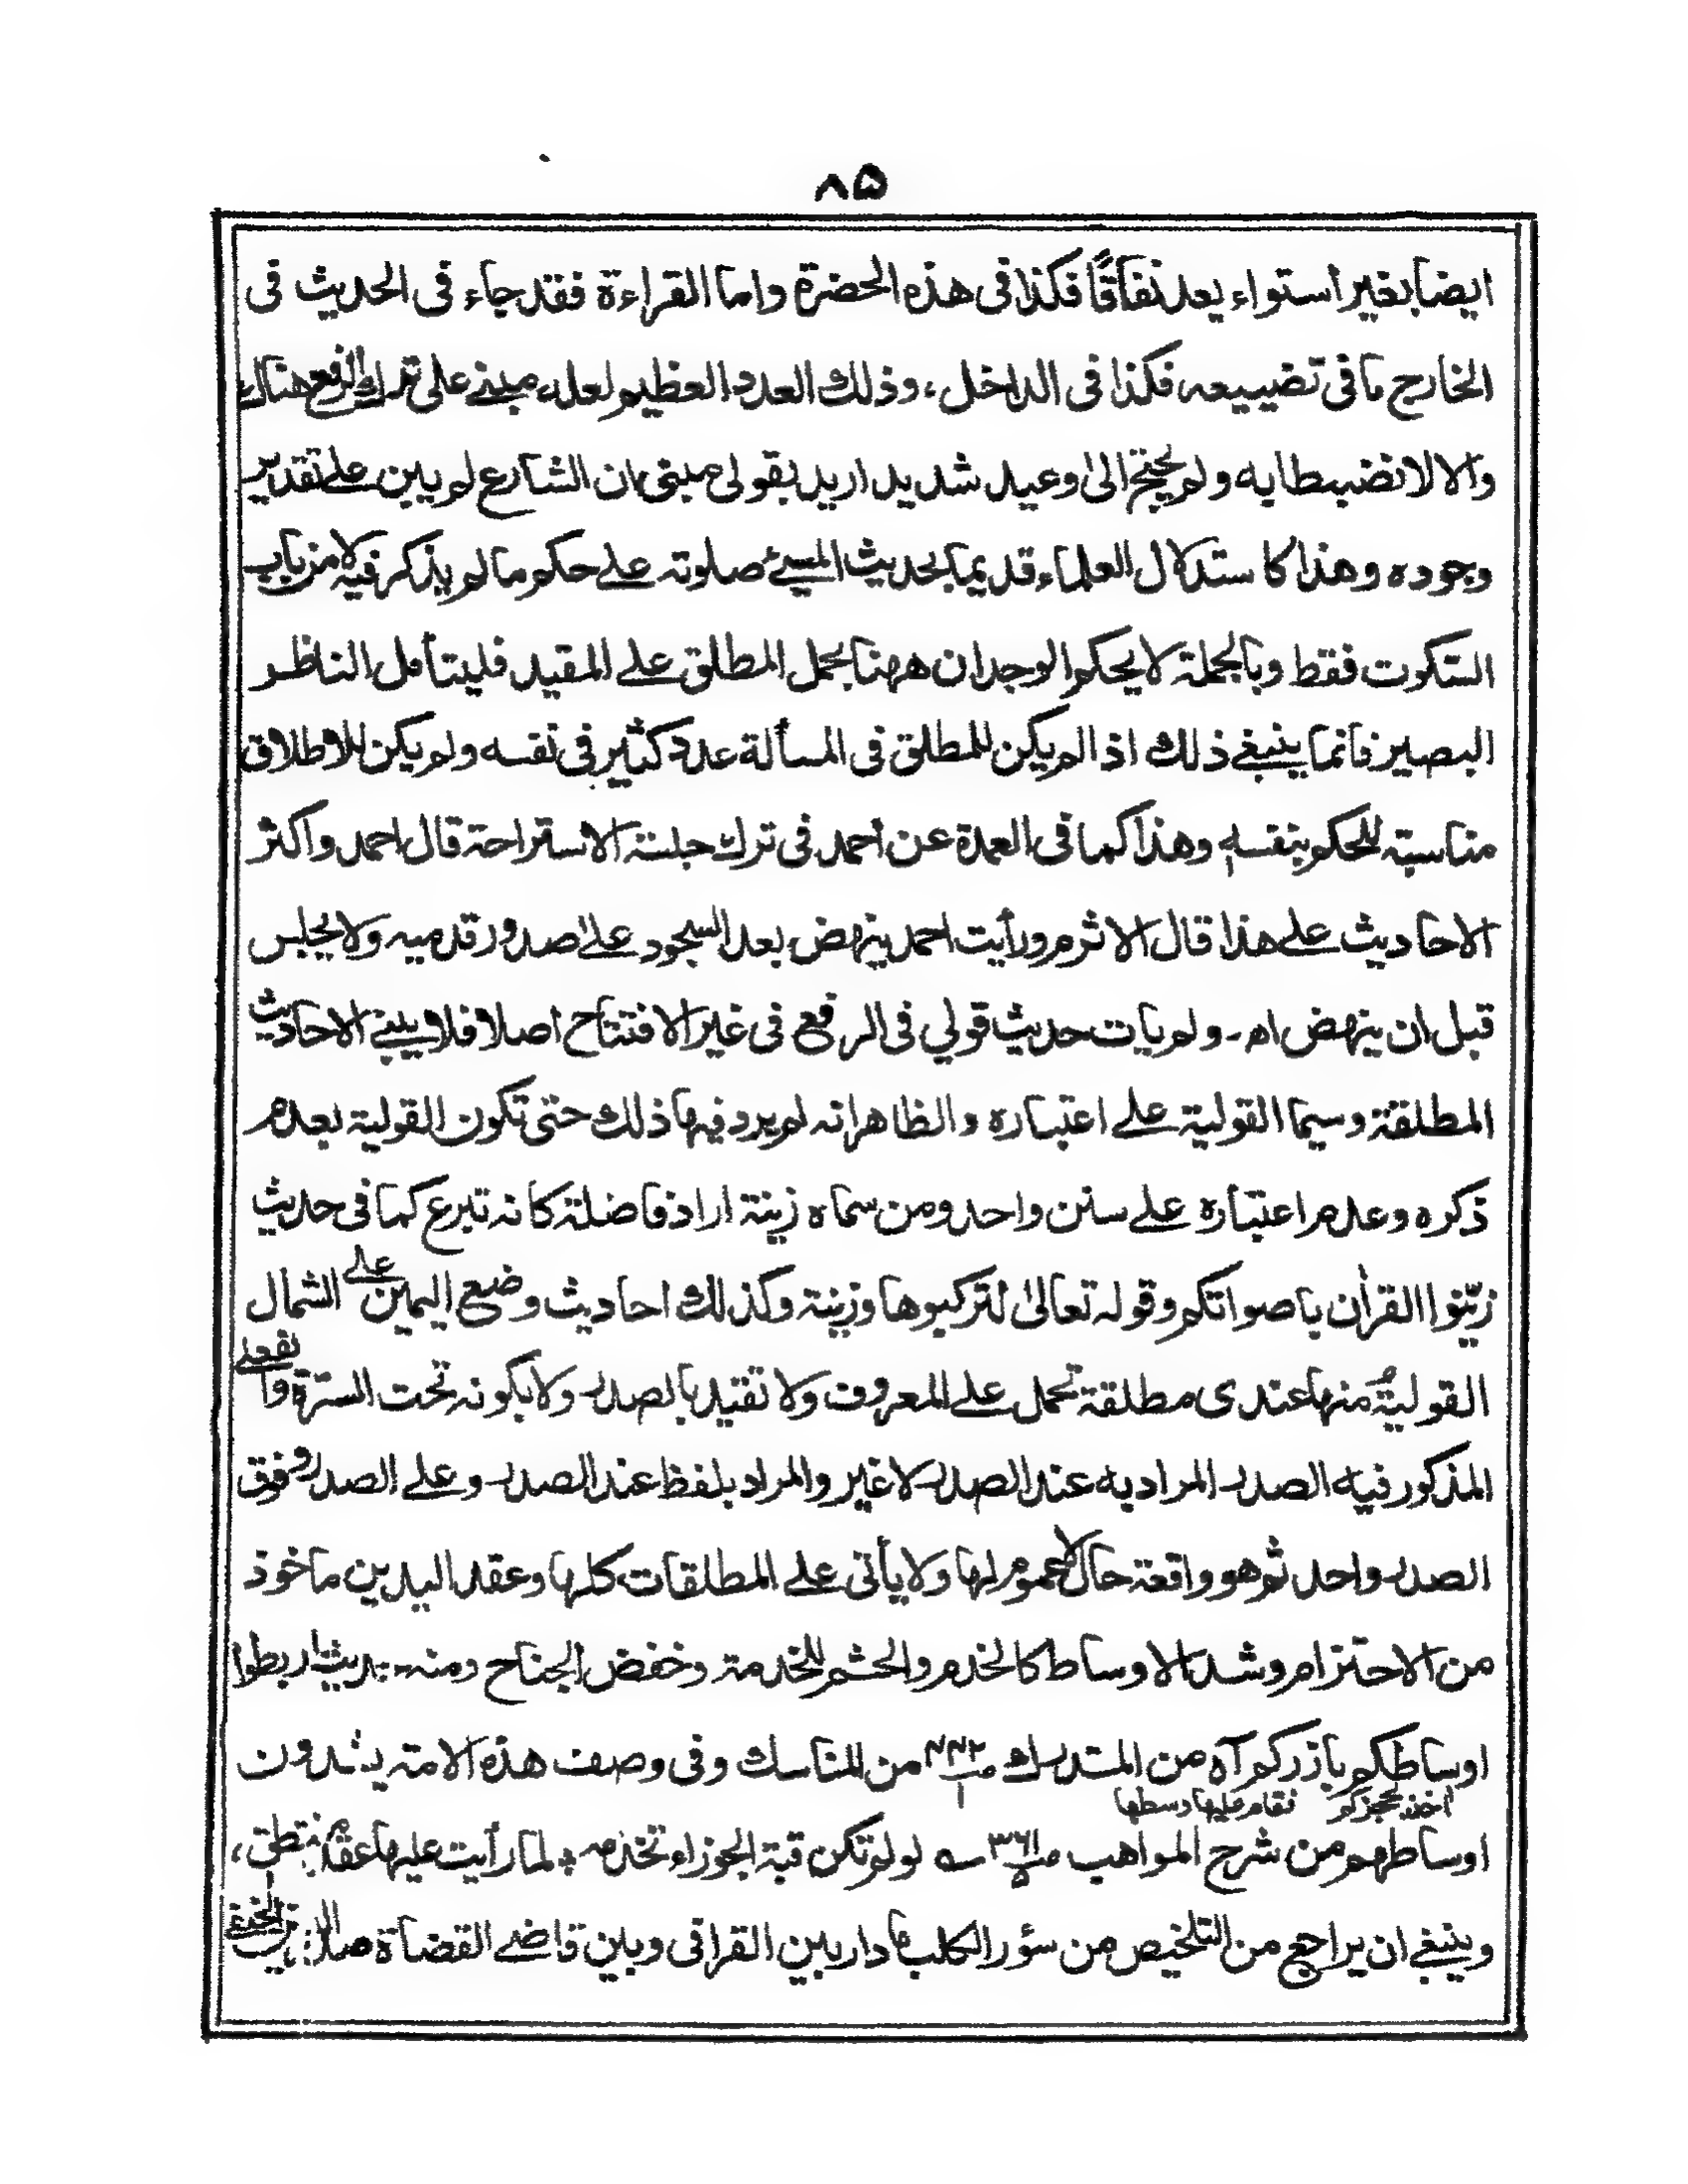 ٨۵
ايضا بغير استواء يعد نفاقًا فكذا فى هذه الحضرة واما القراءة فقد جاء فى الحديث فى
الخارج ما فى تضييعه فكذا فى الداخل، وذلك العدد العظيم لعله مبنے على ترك الرفع هناك
والا لانضبطا به ولم يحتج الىٰ وعيد شديد اريد بقولى مبنى ان الشارع لم يبين علے تقدير
وجوده وهذا كاستدلال العلماء قديما بحديث المسئ صلوته علے حكم ما لم يذكر فيه لا من باب
السكوت فقط وبالجملة لا يحكم الوجدان ههنا بحمل المطلق علے المقيد فليتأمل الناظر
البصير فانما ينبغے ذلك اذا لم يكن للمطلق فى المسألة عدد كثير فى نفسه ولم يكن للاطلاق
مناسبته للحكم بنفسه وهذا كما فى العمدة عن أحمد فى ترك جلسة الاستراحة قال احمد واكثر
الاحاديث علے هذا قال الاثرم ورأيت احمد ينهض بعد السجود علے صدور قدميه ولا يجلس
قبل ان ينهض اه۔ ولم يات حديث قولي فى الرفع فى غير الافتتاح اصلا فلا يبنے الاحاديث
المطلقة وسيما القولية علے اعتباره والظاهر انه لم يرد فيها ذلك حتى تكون القولية بعدم
ذكره وعدم اعتباره علے سنن واحد ومن سماه زينة اراد فاضلة كانه تبرع كما فى حديث
زيّنوا القراٰن باصواتكم وقوله تعالىٰ لتركبوها وزينة وكذلك احاديث وضع اليمين علے الشمال
القولية منها عندى مطلقة تحمل علے المعروف ولا تقيد بالصدر ولا بكونه تحت السرة والفعلے
المذكور فيه الصدر المراد به عند الصدر لا غير والمراد بلفظ عند الصدر وعلے الصدر وفوق
الصدر واحد ثم هو واقعة حال لا عموم لها ولا يأتى علے المطلقات كلها وعقد اليدين ماخوذ
من الاحتزام وشد الاوساط كالخدم والحشم للخدمة وخفض الجناح ومنه حديث اربطوا
اوساطكم بازركم آه من المستدرك ص٤٤٢ من المناسك وفى وصف هذه الامة يشدون
اوساطهم من شرح المواهب ص٣٦١ ؎ لو لم تكن قبة الجوزاء تخدمه ۞ لما رأيت عليها عقد منتطق،
وينبغے ان يراجع من التلخيص من سؤر الكلب ما دار بين القرافى وبين قاضے القضاة صدر الدين الحنفے